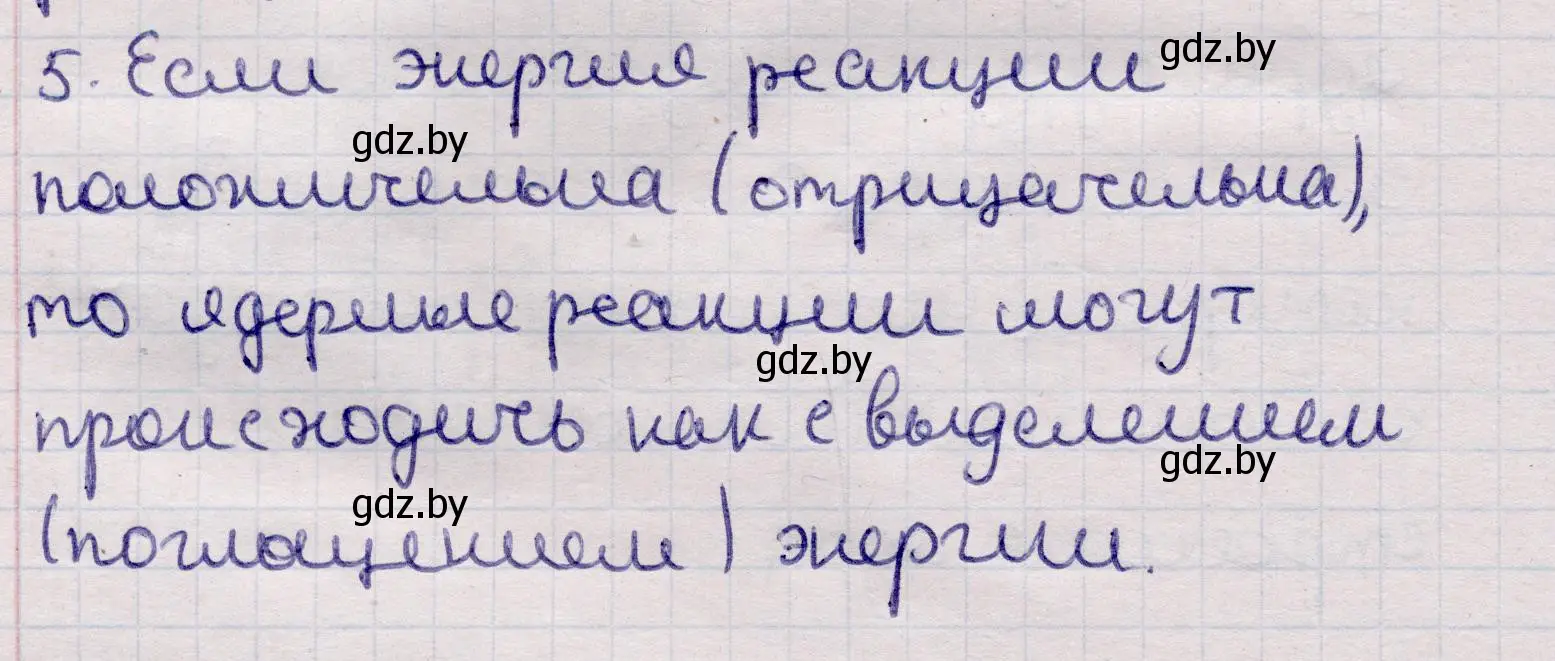 5. Если энергия реакции gdz.by
gdz.by
положительна (отрицательна),
то ядерные реакции могут
gdz.by
происходить как с выделением
gdz.by
gdz.by
(поглощением) энергии.